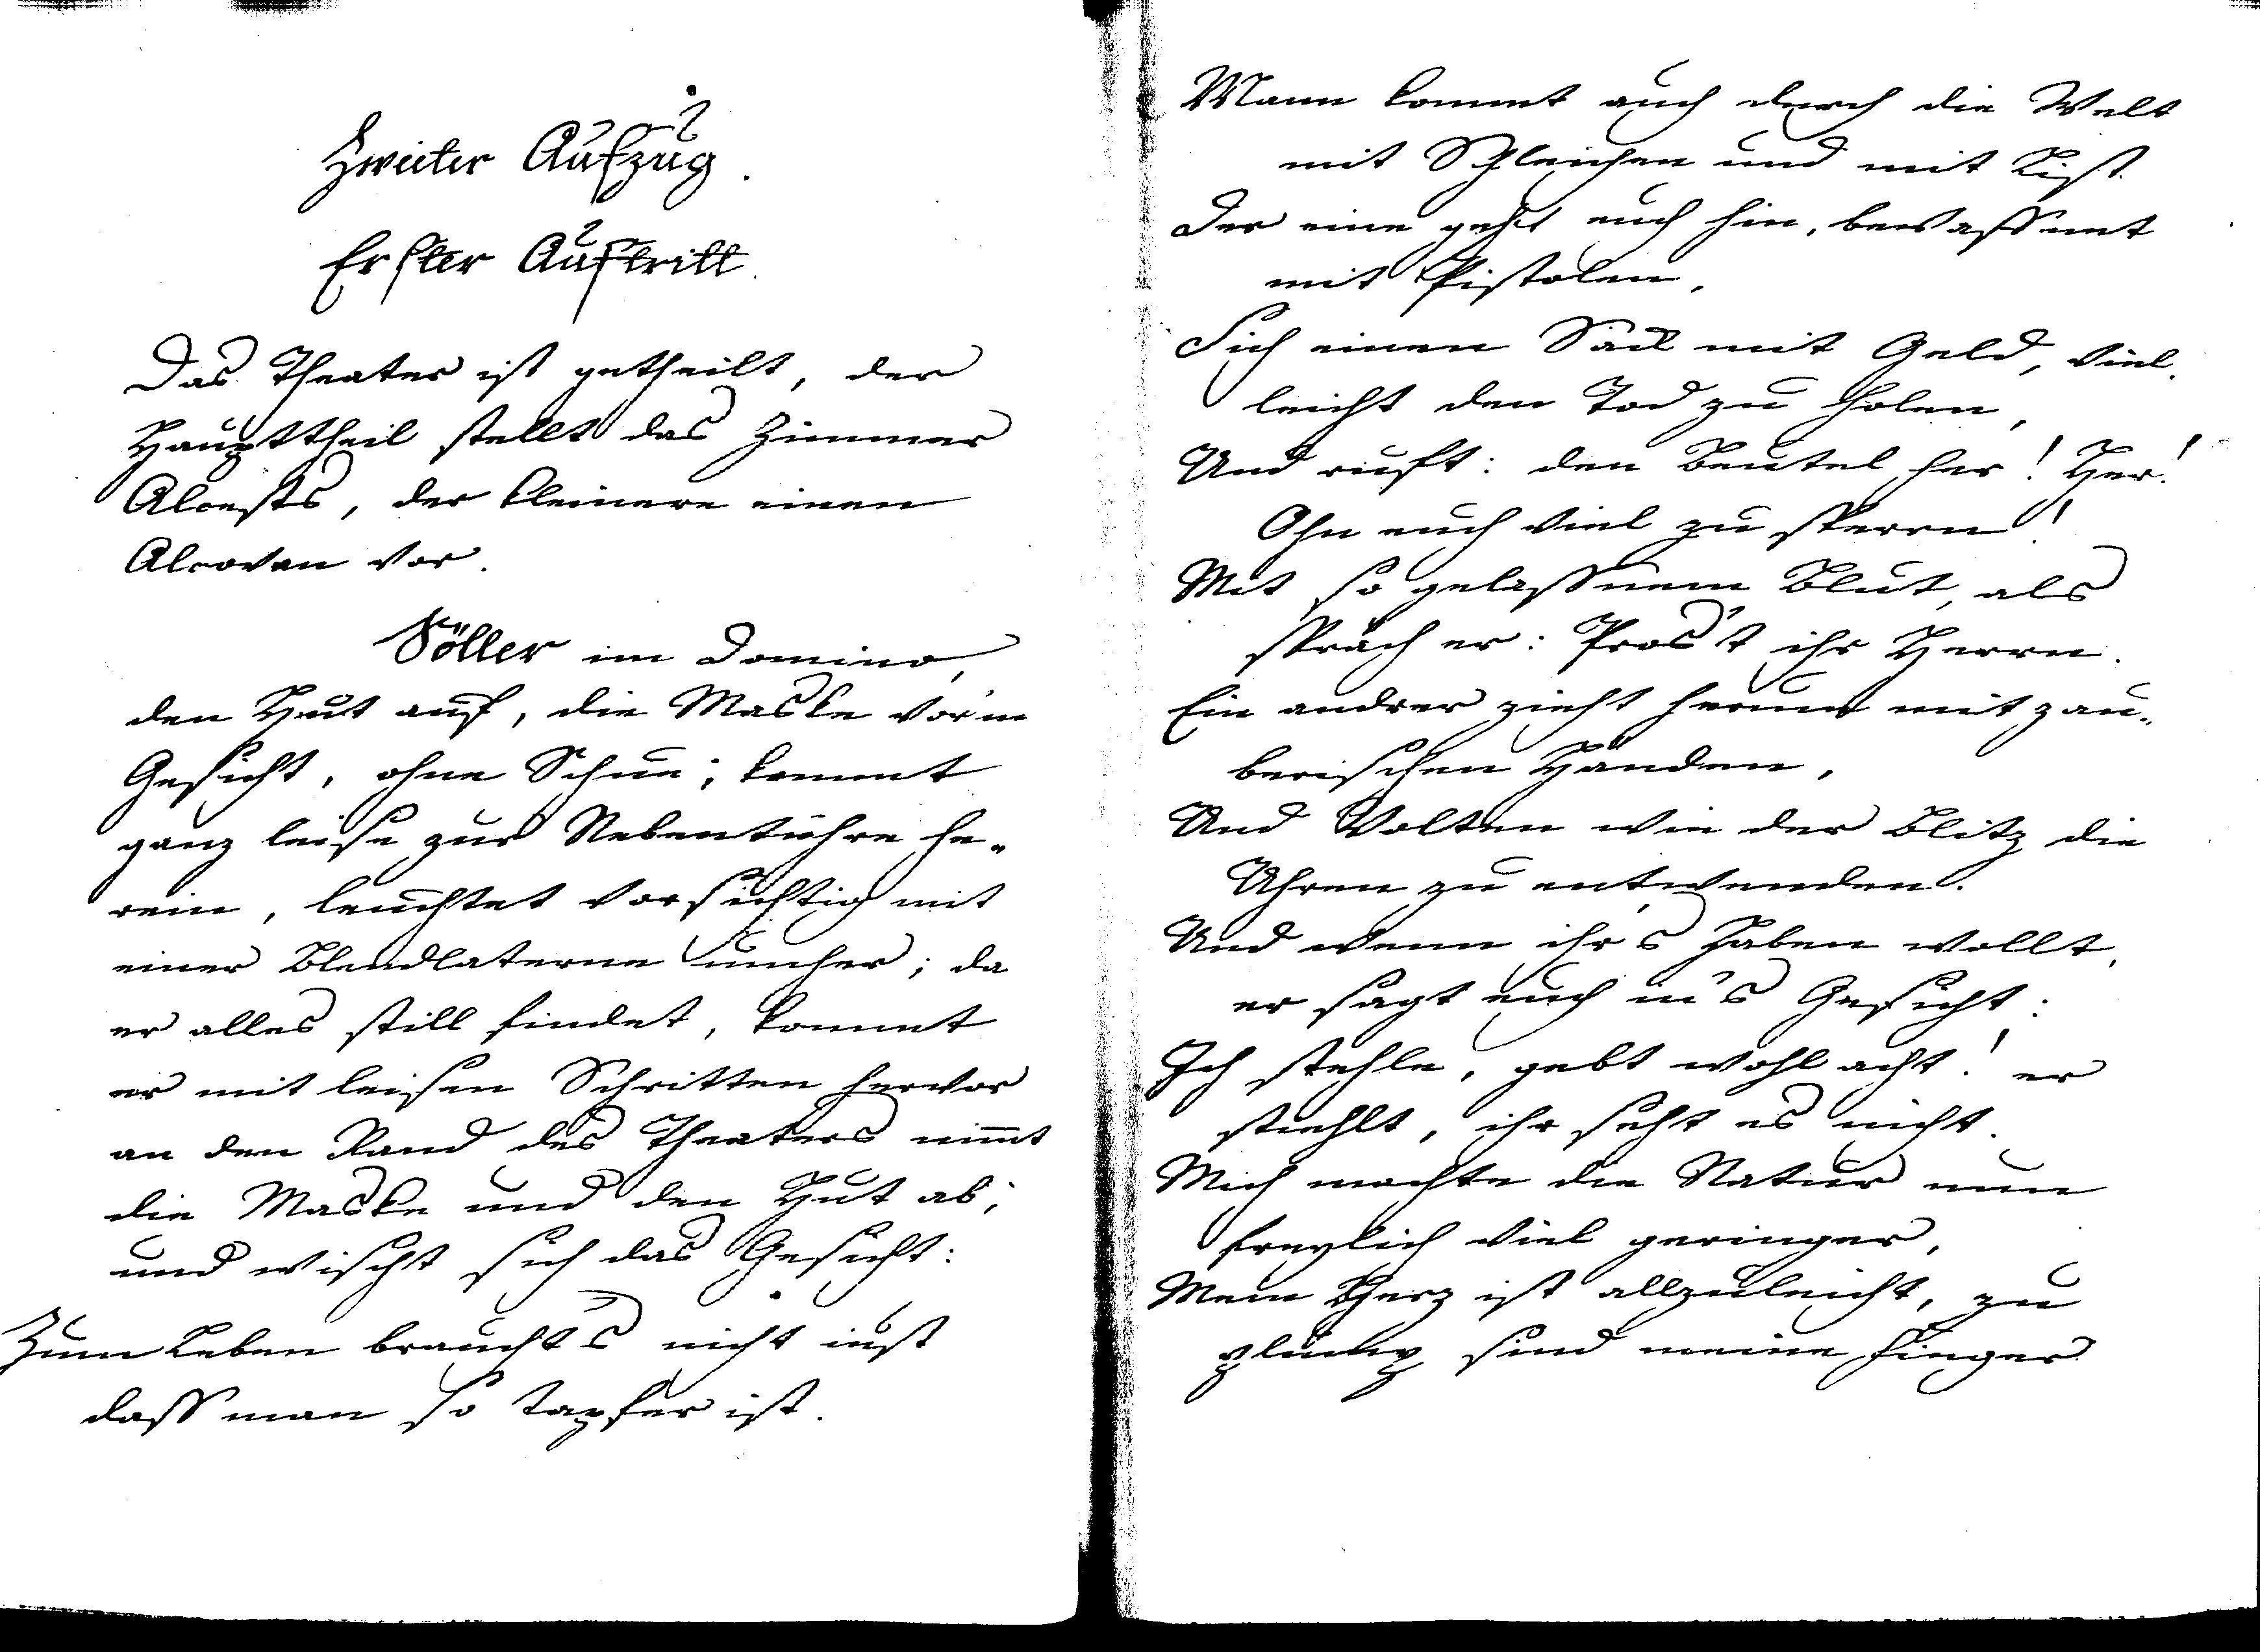 Zweiter Aufzug.
Erster Auftritt.
Das Theater ist getheilt, der
Haupttheil stellt das Zimmer
Alcests, der kleinere einen
Alcoven vor.
Söller im Domino,
den Hut auf, die Maske vor'm
Gesicht, ohne Schue; kommt
ganz leise zur Nebentühre he-
rein, leuchtet vorsichtig mit
einer Blendlaterne umher; da
er alles still findet, kommt
er mit leisen Schritten hervor
an den Rand des Theaters nim̄t
die Maske und den Hut ab;
und wischt sich das Gesicht:
Zum Leben braucht's nicht iust
dass man so tapfer ist.
Mann kommt auch durch die Welt
mit Schleichen und mit List.
Der eine geht euch hin, bewaffnet
mit Pistolen,
Sich einen Sack mit Geld, viel-
leicht den Tod zu holen,
Und ruft: den Beutel her! Her!
Ohn euch viel zu sperren!
Mit so gelassnem Blut, als
spräch er: Pros't ihr Herrn.
Ein andrer zieht herum mit zau-
berischen Händen,
Und Volten wie der Blitz die
Uhren zu entwenden.
Und wenn ihr's haben wollt,
er sagt euch in's Gesicht:
Ich stehle, gebt wohl acht! er
stiehlt, ihr seht es nicht.
Mich machte die Natur nun
freylich viel geringer,
Mein Herz ist allzuleicht, zu
plump sind meine Finger